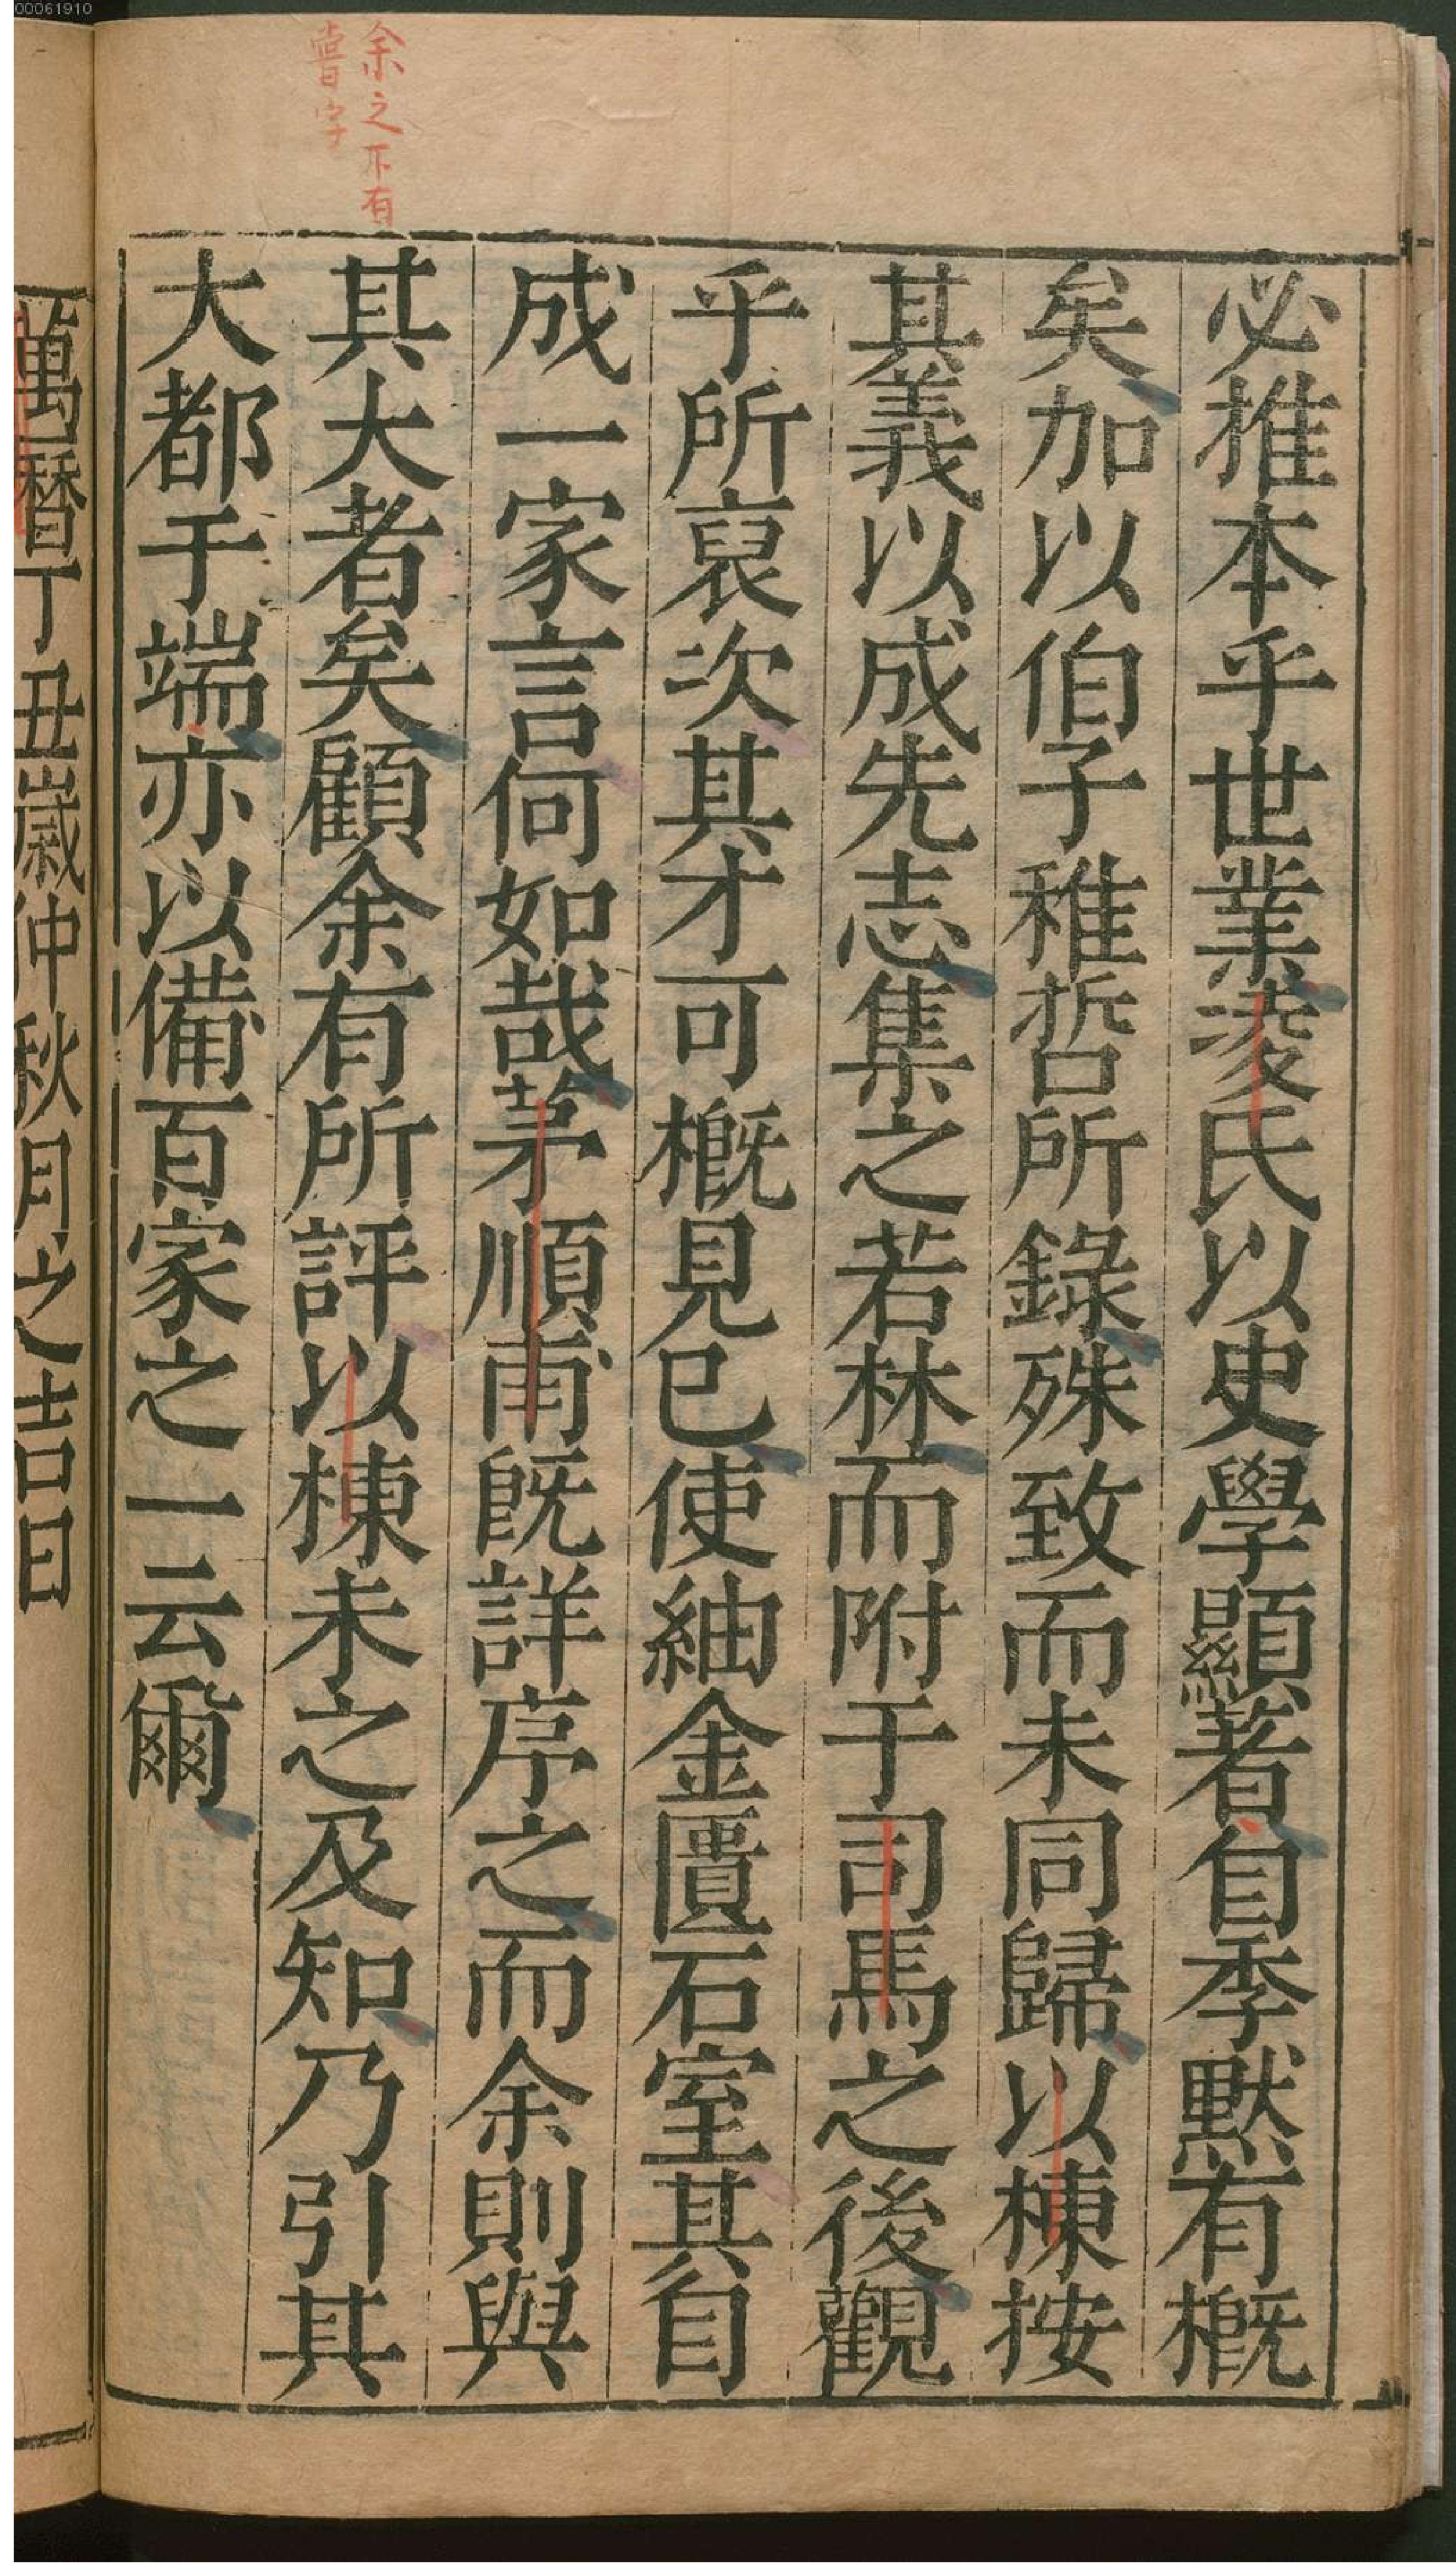 00061910
余之下有
嘗字
必推本乎世業凌氏以史學顯著自季默有概
矣加以伯子稚哲所錄殊致而未同歸以棟按
其義以成先志集之若林而附于司馬之後觀
乎所裒次其才可概見已使紬金匱石室其自
成一家言何如哉茅順甫旣詳序之而余則與
其大者矣顧余有所評以棟未之及知乃引其
大都于端亦以備百家之一云爾
萬曆丁丑歲仲秋月之吉日